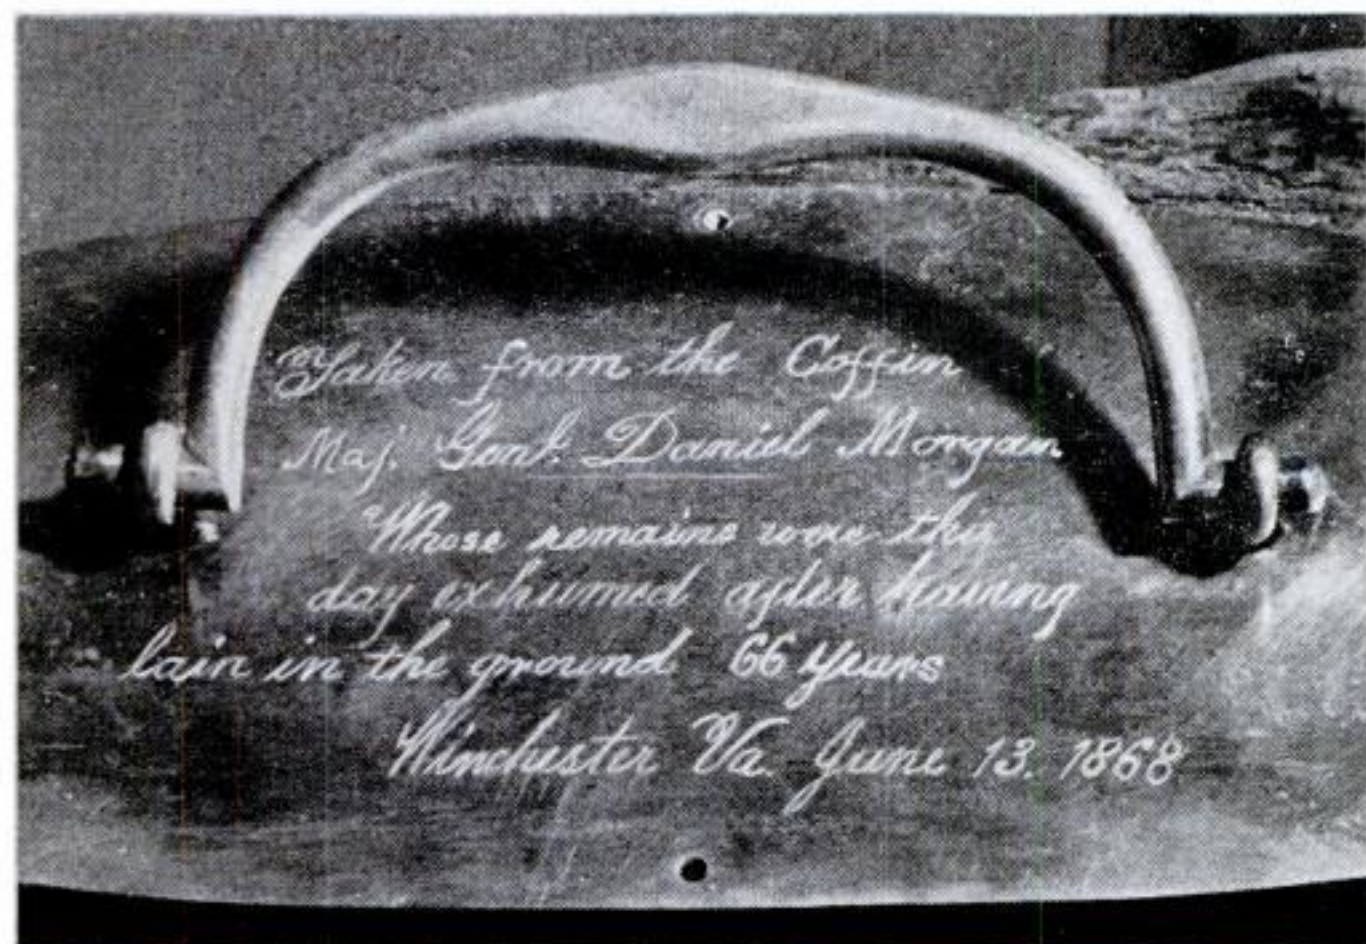 Taken from the Coffin
Maj. Genl. Daniel Morgan
Whose remains were this
day exhumed after having
lain in the ground 66 years
Winchester Va. June 13. 1868